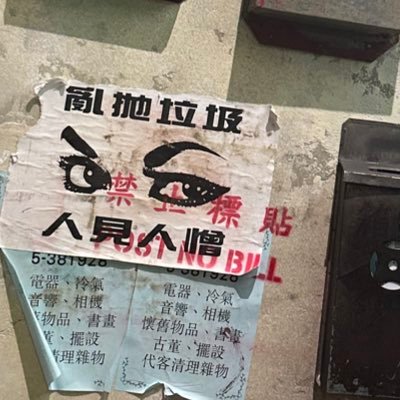 亂拋垃圾
禁止標貼
人見人憎
POST NO BILL
5-381928
5-381928
電器、冷氣
音響、相機
舊物品、書畫
古董、擺設
清理雜物
電器、冷氣
音響、相機
懷舊物品、書畫
古董、擺設
代客清理雜物